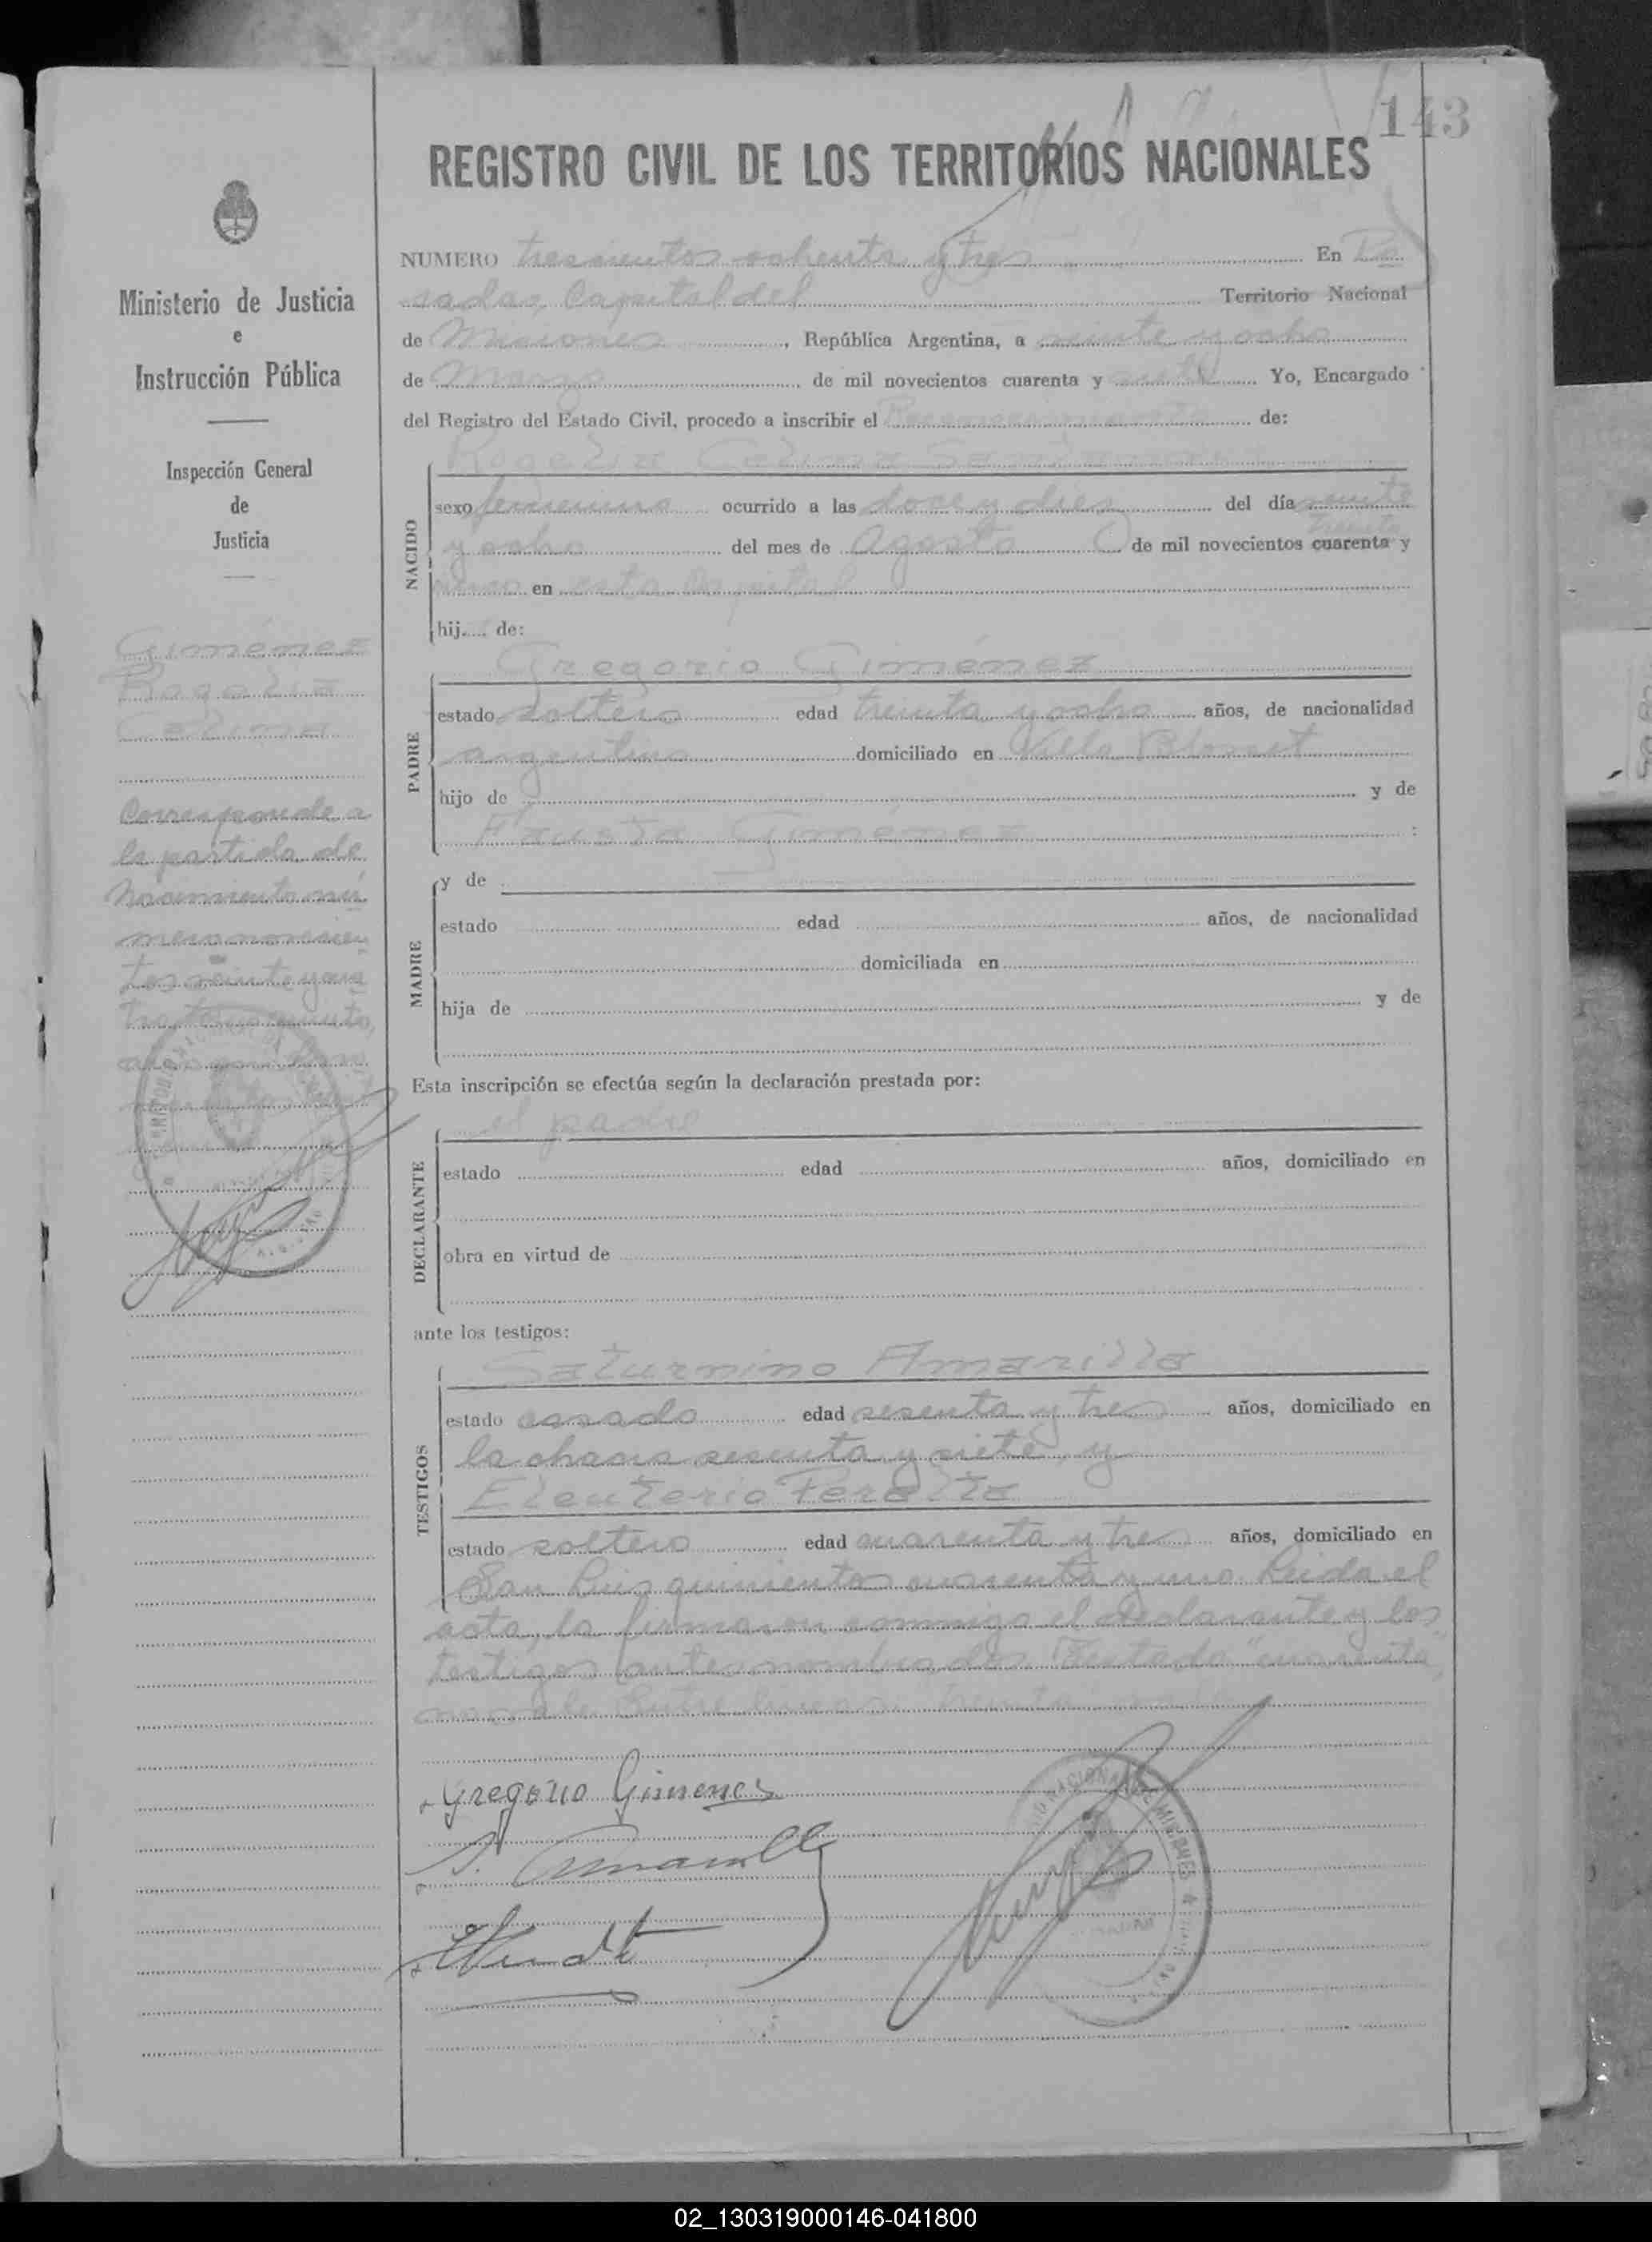 143
REGISTRO CIVIL DE LOS TERRITORIOS NACIONALES
Ministerio de Justicia
e
Instrucción Pública
Inspección General
de
Justicia
Giménez
Rogelia
Celima
Corresponde a
la partida de
Nacimiento nú
mero novecien
tos veinte y cua
tro, tomo
NUMERO trescientos ochenta y tres En Po
sadas, Capital del Territorio Nacional
de Misiones, República Argentina, a veinte y ocho
de Marzo de mil novecientos cuarenta y siete Yo, Encargado
del Registro del Estado Civil, procedo a inscribir el Reconocimiento de:
Rogelia Celima
NACIDO
sexo femenino ocurrido a las doce y diez del día veinte
treinta
y ocho del mes de Agosto de mil novecientos cuarenta y
en esta Capital
hij.... de:
Gregorio Giménez
PADRE
estado soltero edad treinta y ocho años, de nacionalidad
argentino domiciliado en Villa Blosset
hijo de y de
Fausta Giménez :
y de
MADRE
estado edad años, de nacionalidad
domiciliada en
hija de y de
Esta inscripción se efectúa según la declaración prestada por:
el padre
DECLARANTE
estado edad años, domiciliado en
obra en virtud de
ante los testigos:
Saturnino Amarilla
TESTIGOS
estado casado edad sesenta y tres años, domiciliado en
la chacra sesenta y siete, y
Eleuterio Peralta
estado soltero edad cuarenta y tres años, domiciliado en
San Luis quinientos cuarenta y uno. Leida el
acta, la firmaron conmigo el declarante y los
testigos antes nombrados. Testado "cuarenta",
no vale. Entre lineas: treinta
Gregorio Gimenes
S. Amarilla
02_130319000146-041800